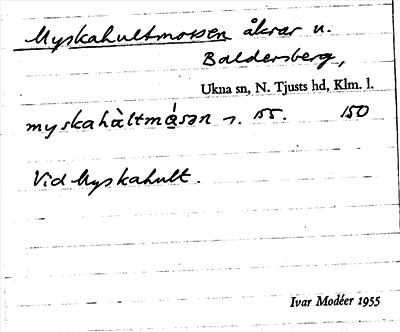 Myskahultmossen åkrar u.
Baldersberg,
Ukna sn, N. Tjusts hd, Klm. l.
myskahàltmɑ́sən s. 155. 150
Vid Myskahult.
Ivar Modéer 1955